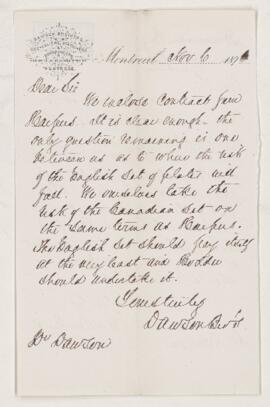 Montreal Nov 6 187
Dear Sir
We inclose contract from
Harpers. It is clear enough - the
only question remaining is one
between us as to whom the risk
of the English set of plates will
fall. We ourselves take the
risk of the Canadian set on
the same terms as Harpers.
The English set should pay itself
at the very least and
should undertake it.
Yours truly
Dawson Bros
Dr Dawson